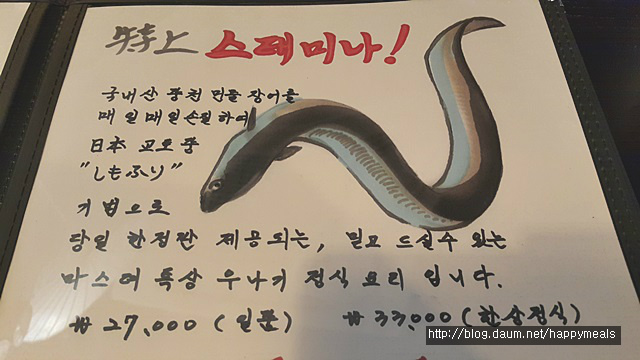 特上 스태미나!
국내산 풍천 민물 장어를
매일 매일 손질하여
日本 교토풍
"しもふり"
기법으로
당일 한정판 제공되는, 믿고 드실수 있는
마스터 특상 우나기 정식 요리 입니다.
₩27,000 (일품) ₩33,000 (한상정식)
http://blog.daum.net/happymeals